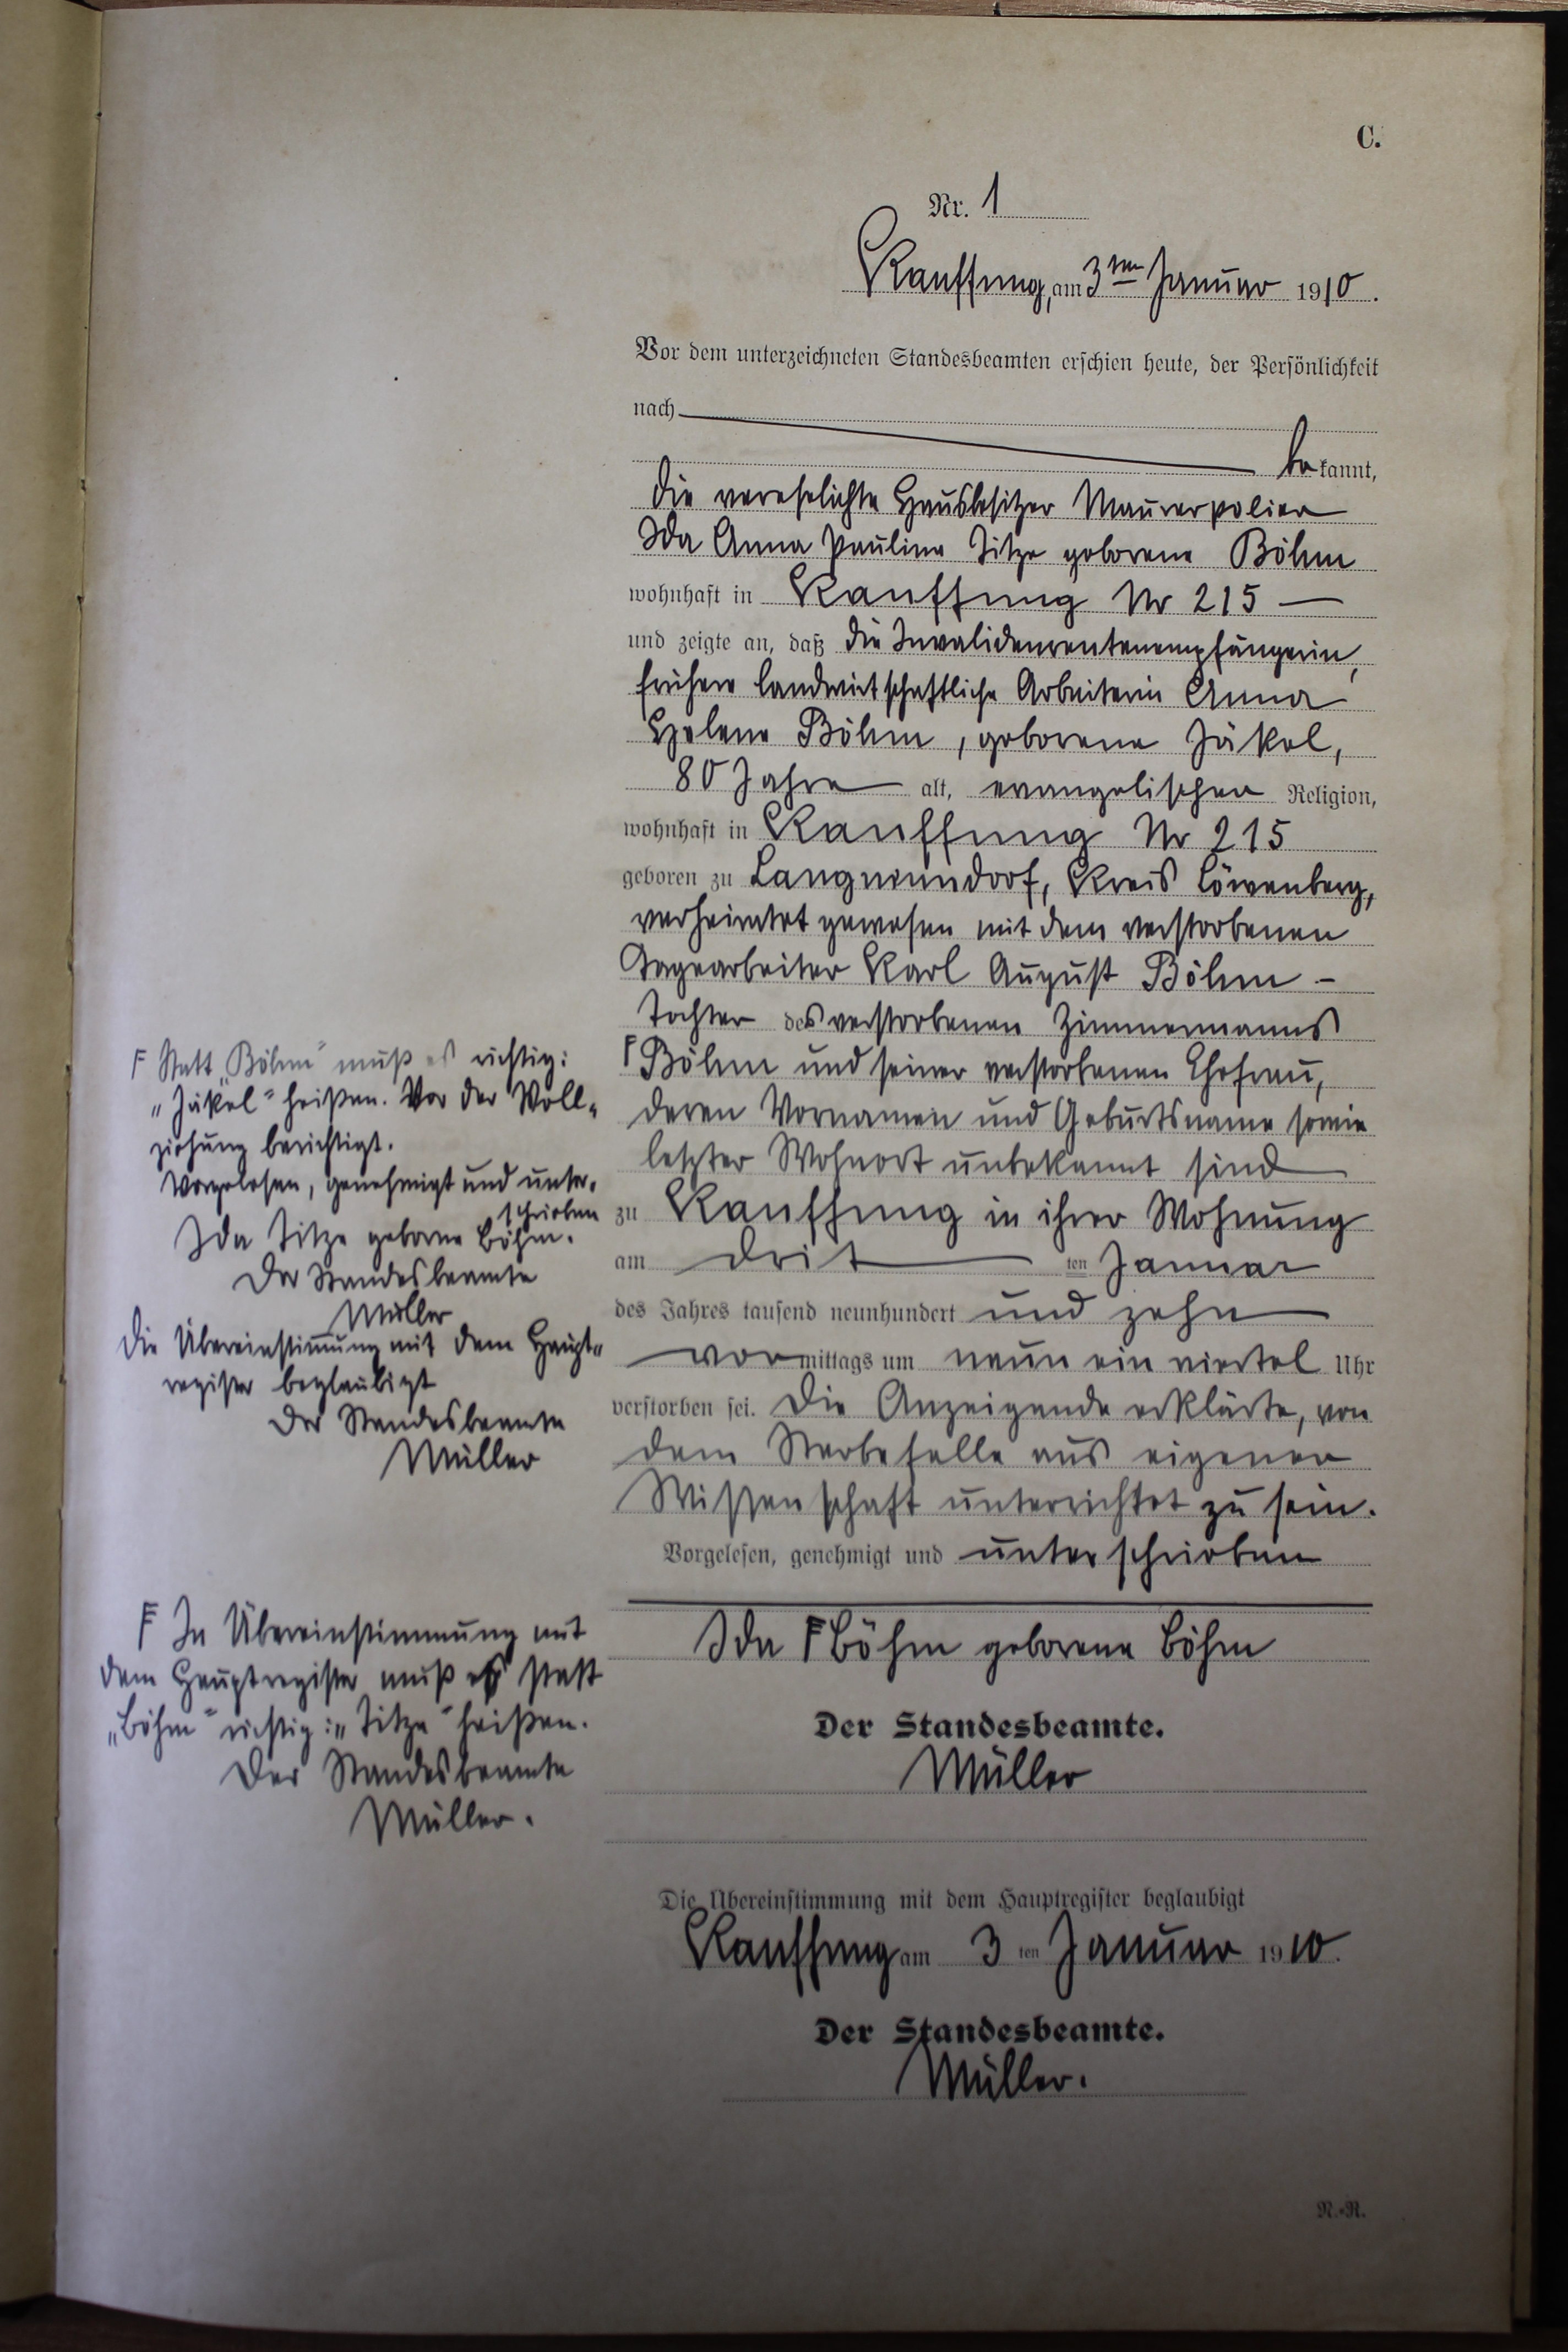 C.
Nr. 1
Kauffung, am 3ten Januar 1910.
Vor dem unterzeichneten Standesbeamten erschien heute, der Persönlichkeit
nach
bekannt,
die verehelichte Hausbesitzer Maurerpolier
Ida Anna Pauline Titze geborene Böhm
wohnhaft in Kauffung Nr 215
und zeigte an, daß die Invalidenrentenempfängerin,
frühere landwirtschaftliche Arbeiterin Anna
Helene Böhm, geborene Jäkel,
80 Jahre alt, evangelischer Religion,
wohnhaft in Kauffung Nr 215
geboren zu Langneundorf, Kreis Löwenberg,
verheiratet gewesen mit dem verstorbenen
Tagearbeiter Karl August Böhm -
Tochter des verstorbenen Zimmermanns
F Böhm und seiner verstorbenen Ehefrau,
deren Vornamen und Geburtsname sowie
letzter Wohnort unbekannt sind
zu Kauffung in ihrer Wohnung
am dritten Januar
des Jahres tausend neunhundert und zehn
vormittags um neun ein viertel Uhr
verstorben sei. Die Anzeigende erklärte, von
dem Sterbefalle aus eigener
Wissenschaft unterrichtet zu sein.
Vorgelesen, genehmigt und unterschrieben
Ida F Böhm geborene Böhm
Der Standesbeamte.
Müller
Die Übereinstimmung mit dem Hauptregister beglaubigt
Kauffung am 3ten Januar 1910.
Der Standesbeamte.
Müller.
F Statt „Böhm“ muß es richtig:
„Jäkel“ heißen. Vor der Voll-
ziehung berichtigt.
Vorgelesen, genehmigt und unter-
schrieben
Ida Titze geborne Böhm.
Der Standesbeamte
Müller
Die Übereinstimmung mit dem Haupt-
register beglaubigt
Der Standesbeamte
Müller
F In Übereinstimmung mit
dem Hauptregister muß es statt
„Böhm“ richtig: „Titze“ heißen.
Der Standesbeamte
Müller.
N.-R.